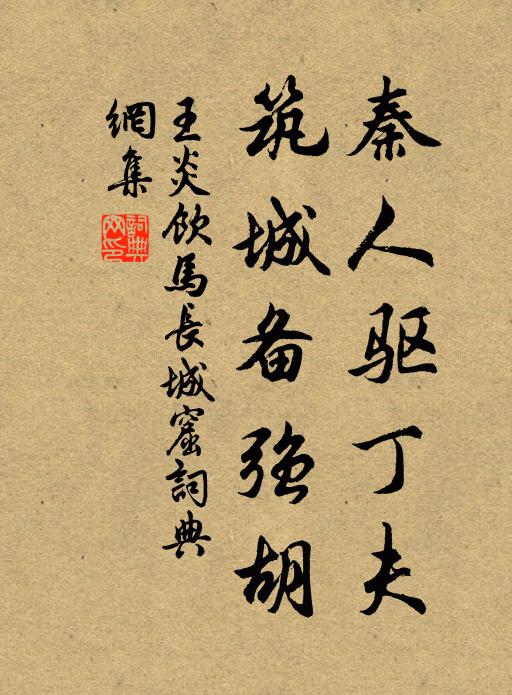 秦人驱丁夫
筑城备强胡
王炎飲馬長城窟詞典
網集
詞典网印